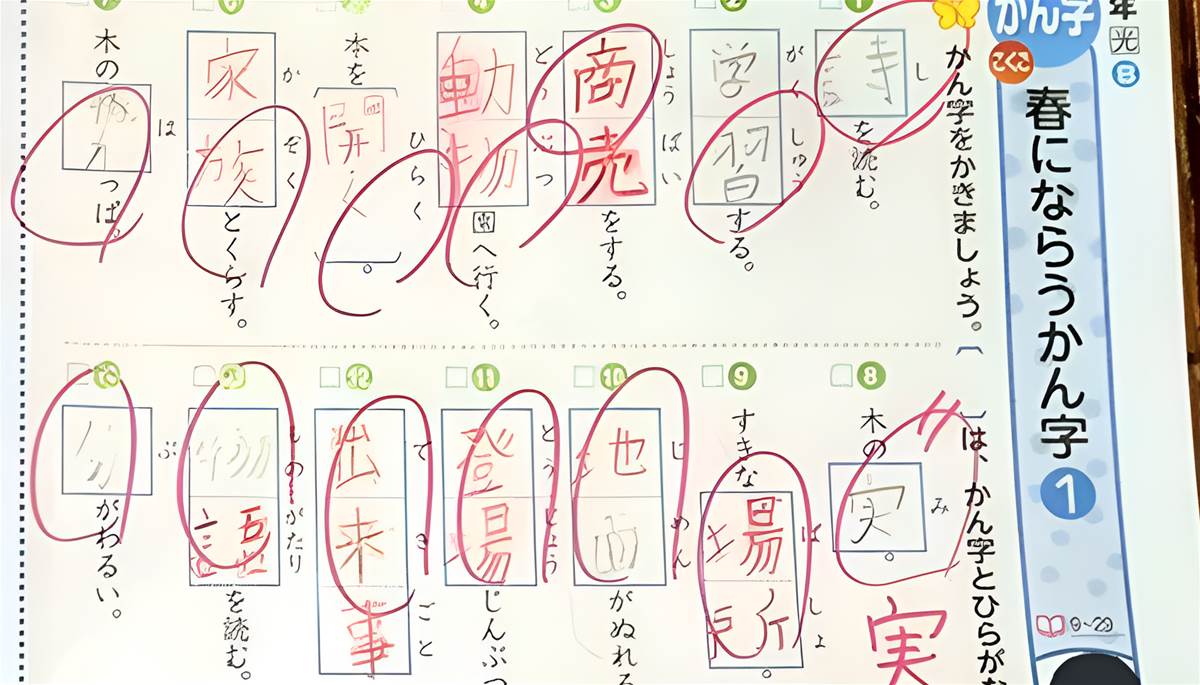 年 光 8
かん字
こくご
春にならうかん字 1
9~29
かん字をかきましょう。
〔 〕は、かん字とひらがな
1
詩 し を読む。
2
学習 がくしゅう する。
3
商売 しょうばい をする。
4
動物 どうぶつ 園へ行く。
本を〔開く ひらく〕。
家族 かぞく とくらす。
木の は っぱ。
8
木の 実 み 。
実
9
すきな 場所 ばしょ 。
10
地面 じめん がぬれる
11
登場 とうじょう じんぶつ
12
出来事 できごと
物語 ものがたり を読む。
分 ぶ がわるい。